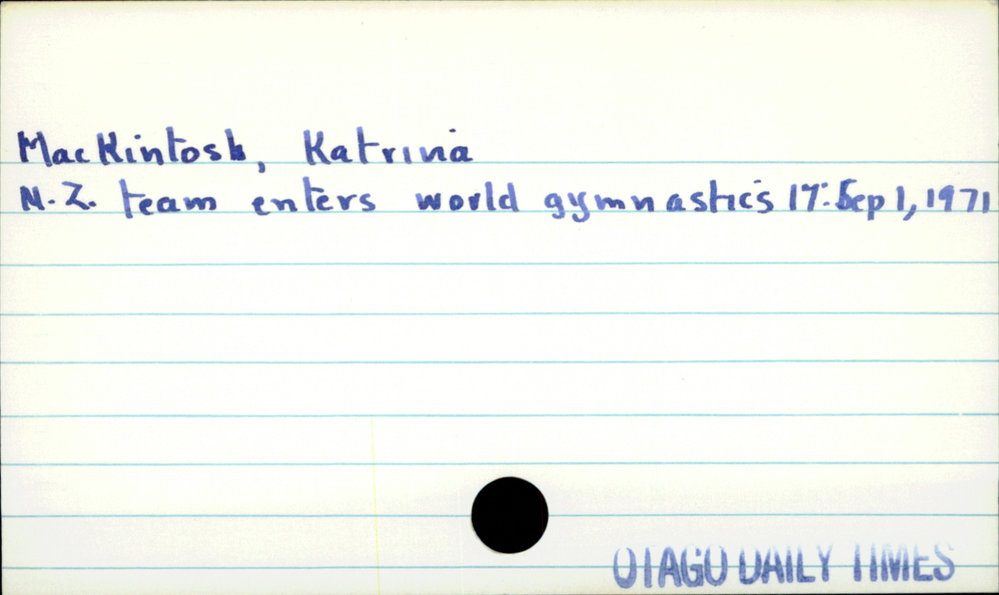 MacKintosh, Katrina
N.Z. team enters world gymnastics 17: Sep 1, 1971
OTAGO DAILY TIMES